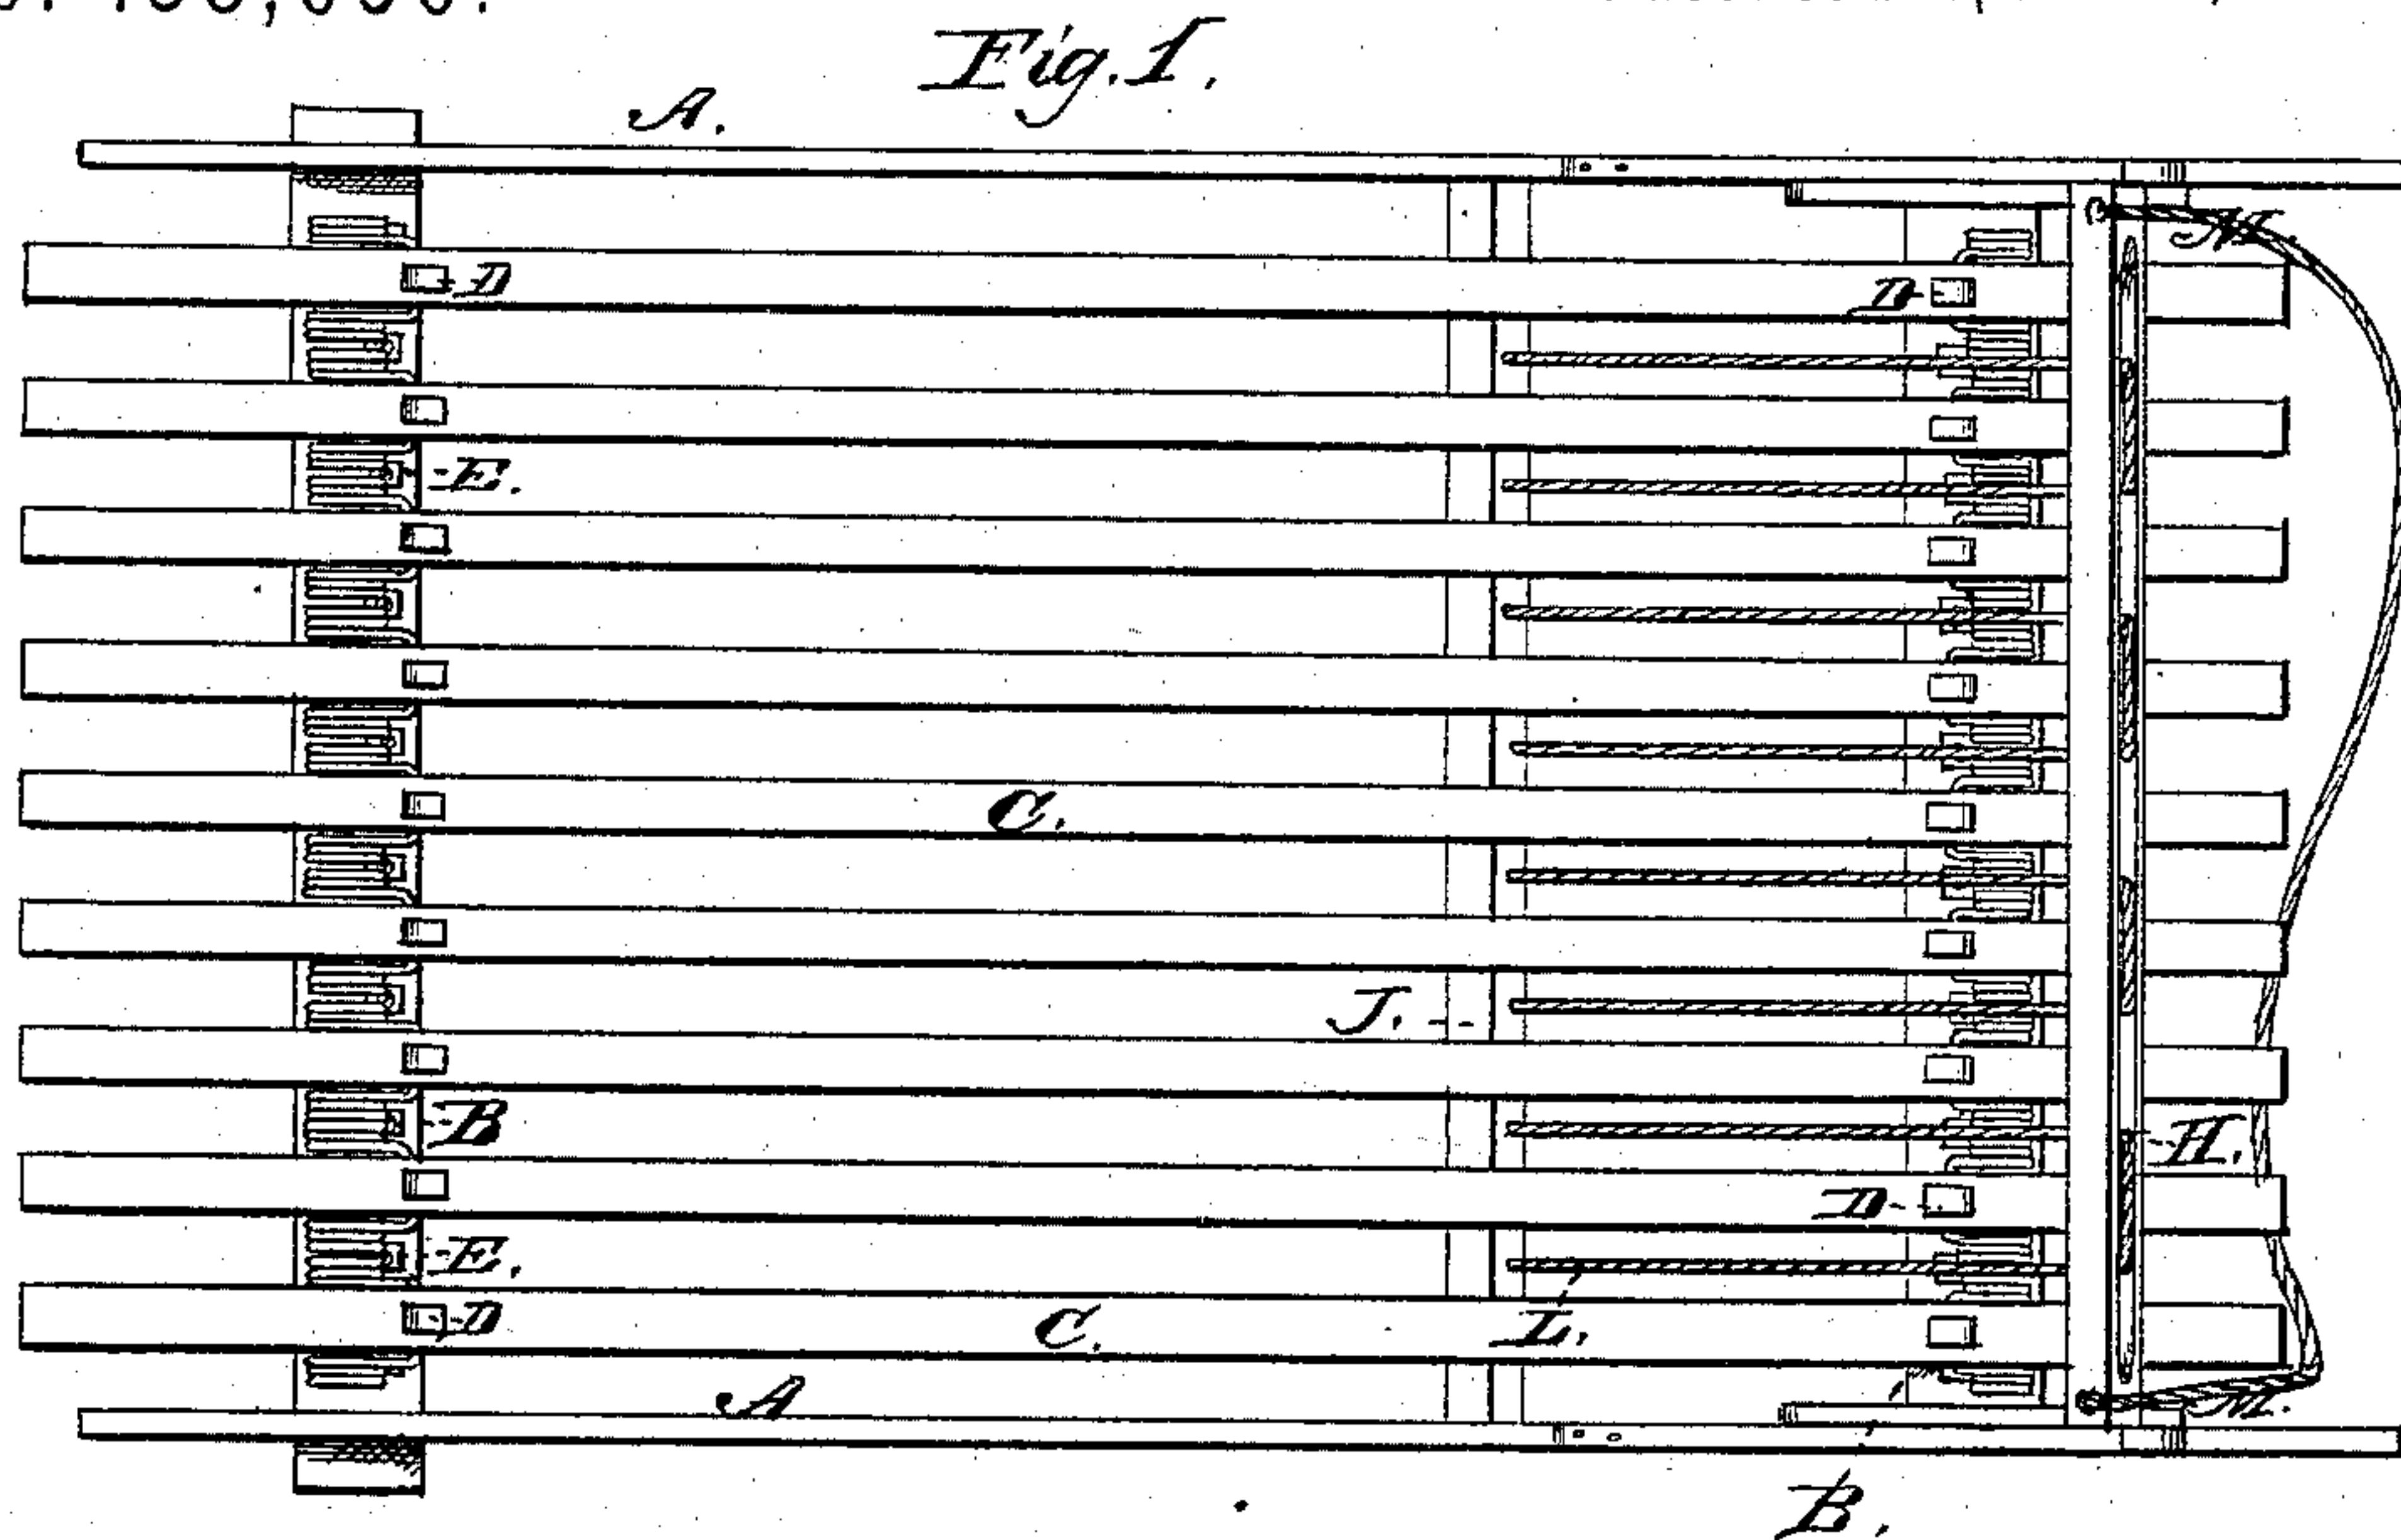 Fig. 1.
A.
M.
D
D
E.
C.
J.
B
H.
D
E.
D
C.
L.
A
M.
B.